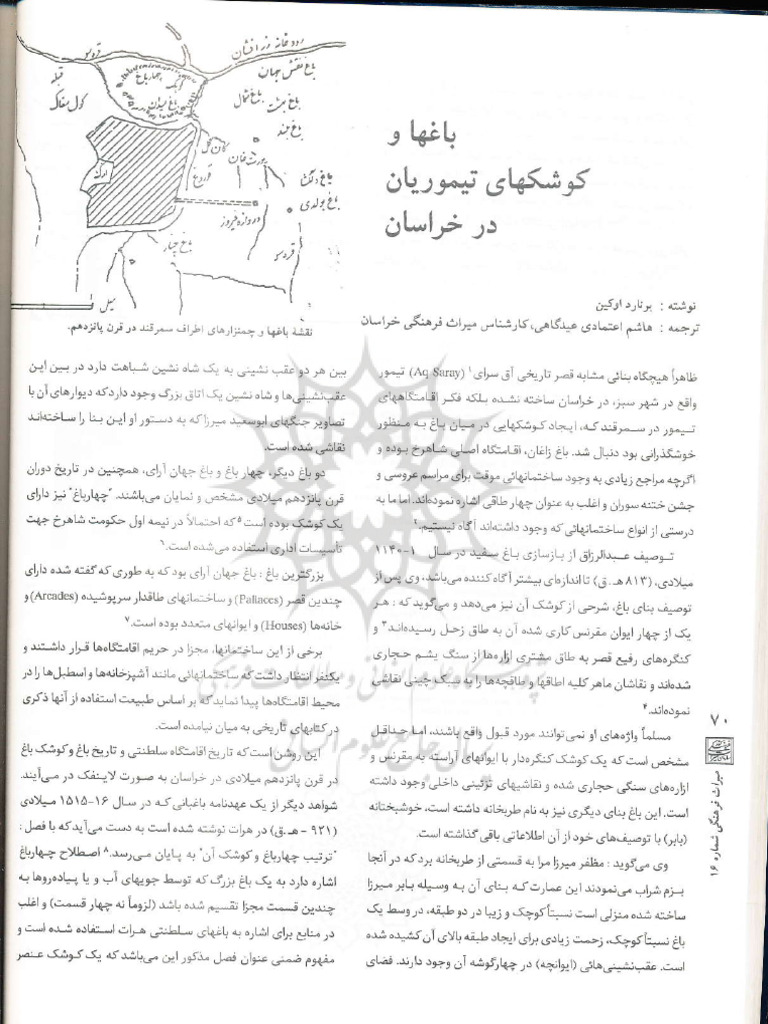 باغها و
کوشکهای تیموریان
در خراسان
نوشته : برنارد اوکین
ترجمه : هاشم اعتمادی عیدگاهی، کارشناس میراث فرهنگی خراسان
رودخانه زرافشان
باغ نقش جهان
باغ بهشت
باغ شمال
چهارباغ
باغ میدان
کول مغاک
کان گل
باغ دلگشا
باغ بولدی
دروازه فیروز
باغ چنار
ارک
میل
نقشهٔ باغها و چمنزارهای اطراف سمرقند در قرن پانزدهم.
ظاهراً هیچگاه بنائی مشابه قصر تاریخی آق سرای۱ (Aq Saray) تیمور
واقع در شهر سبز، در خراسان ساخته نشده بلکه فکر اقامتگاههای
تیمور در سمرقند که، ایجاد کوشکهایی در میان باغ به منظور
خوشگذرانی بود دنبال شد. باغ زاغان، اقامتگاه اصلی شاهرخ بوده و
اگرچه مراجع زیادی به وجود ساختمانهائی موقت برای مراسم عروسی و
جشن ختنه سوران و اغلب به عنوان چهار طاقی اشاره نموده‌اند. اما ما به
درستی از انواع ساختمانهائی که وجود داشته‌اند آگاه نیستیم.۲
توصیف عبدالرزاق از بازسازی باغ سفید در سال ۱-۱۱۴۰
میلادی، (۸۱۳ هـ.ق) تا اندازه‌ای بیشتر آگاه کننده می‌باشد، وی پس از
توصیف بنای باغ، شرحی از کوشک آن نیز می‌دهد و می‌گوید که : هر
یک از چهار ایوان مقرنس کاری شده آن به طاق زحل رسیده‌اند۳ و
کنگره‌های رفیع قصر به طاق مشتری ازاره‌ها از سنگ یشم حجاری
شده‌اند و نقاشان ماهر کلیه اطاقها و طاقچه‌ها را به سبک چینی نقاشی
نموده‌اند.۴
مسلماً واژه‌های او نمی‌توانند مورد قبول واقع باشند، اما حداقل
مشخص است که یک کوشک کنگره‌دار با ایوانهای آراسته به مقرنس و
ازاره‌های سنگی حجاری شده و نقاشیهای تزئینی داخلی وجود داشته
است. این باغ بنای دیگری نیز به نام طربخانه داشته است، خوشبختانه
(بابر) با توصیف‌های خود از آن اطلاعاتی باقی گذاشته است.
وی می‌گوید : مظفر میرزا مرا به قسمتی از طربخانه برد که در آنجا
بزم شراب می‌نمودند این عمارت که بنای آن به وسیله بابر میرزا
ساخته شده منزلی است نسبتاً کوچک و زیبا در دو طبقه، در وسط یک
باغ نسبتاً کوچک، زحمت زیادی برای ایجاد طبقه بالای آن کشیده شده
است. عقب‌نشینی‌هائی (ایوانچه) در چهارگوشه آن وجود دارند. فضای
بین هر دو عقب نشینی به یک شاه نشین شباهت دارد در بین این
عقب‌نشینی‌ها و شاه نشین یک اتاق بزرگ وجود دارد که دیوارهای آن با
تصاویر جنگهای ابوسعید میرزا که به دستور او این بنا را ساخته‌اند
نقاشی شده است.
دو باغ دیگر، چهار باغ و باغ جهان آرای، همچنین در تاریخ دوران
قرن پانزدهم میلادی مشخص و نمایان می‌باشند. "چهارباغ" نیز دارای
یک کوشک بوده است۵ که احتمالاً در نیمه اول حکومت شاهرخ جهت
تأسیسات اداری استفاده می‌شده است.۶
بزرگترین باغ : باغ جهان آرای بود که به طوری که گفته شده دارای
چندین قصر (Pallaces) و ساختمانهای طاقدار سرپوشیده (Arcades) و
خانه‌ها (Houses) و ایوانهای متعدد بوده است.۷
برخی از این ساختمانها، مجزا در حریم اقامتگاه‌ها قرار داشتند و
یکنفر انتظار داشت که ساختمانهائی مانند آشپزخانه‌ها و اسطبل‌ها را در
محیط اقامتگاه‌ها پیدا نماید که بر اساس طبیعت استفاده از آنها ذکری
در کتابهای تاریخی به میان نیامده است.
این روشن است که تاریخ اقامتگاه سلطنتی و تاریخ باغ و کوشک باغ
در قرن پانزدهم میلادی در خراسان به صورت لاینفک در می‌آیند.
شواهد دیگر از یک عهدنامه باغبانی که در سال ۱۶-۱۵۱۵ میلادی
(۹۲۱ - هـ.ق) در هرات نوشته شده است به دست می‌آید که با فصل :
"ترتیب چهارباغ و کوشک آن" به پایان می‌رسد.۸ اصطلاح چهارباغ
اشاره دارد به یک باغ بزرگ که توسط جویهای آب و یا پیاده‌روها به
چندین قسمت مجزا تقسیم شده باشد (لزوماً نه چهار قسمت) و اغلب
در منابع برای اشاره به باغهای سلطنتی هرات استفاده شده است و
مفهوم ضمنی عنوان فصل مذکور این می‌باشد که یک کوشک عنصر
۷۰
میراث فرهنگی شماره ۱۶
پژوهشگاه علوم انسانی و مطالعات فرهنگی
پرتال جامع علوم انسانی